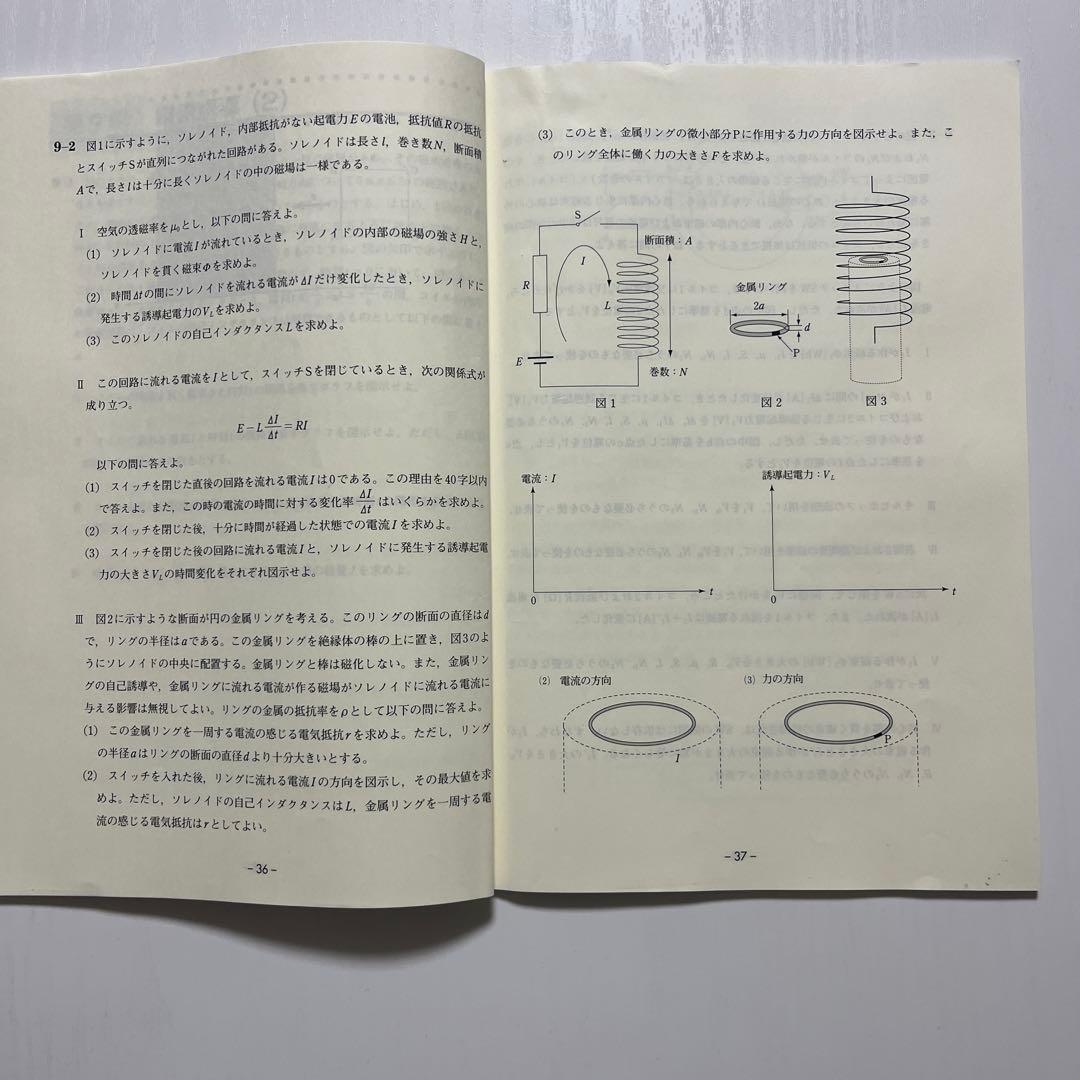 9-2 図1に示すように，ソレノイド，内部抵抗がない起電力Eの電池，抵抗値Rの抵抗
とスイッチSが直列につながれた回路がある。ソレノイドは長さl，巻き数N，断面積
Aで，長さlは十分に長くソレノイドの中の磁場は一様である。
Ⅰ 空気の透磁率をμ₀とし，以下の問に答えよ。
(1) ソレノイドに電流Iが流れているとき，ソレノイドの内部の磁場の強さHと，
ソレノイドを貫く磁束Φを求めよ。
(2) 時間Δtの間にソレノイドを流れる電流がΔIだけ変化したとき，ソレノイドに
発生する誘導起電力のV_Lを求めよ。
(3) このソレノイドの自己インダクタンスLを求めよ。
Ⅱ この回路に流れる電流をIとして，スイッチSを閉じているとき，次の関係式が
成り立つ。
E－L ΔI/Δt ＝RI
以下の問に答えよ。
(1) スイッチを閉じた直後の回路を流れる電流Iは0である。この理由を40字以内
で答えよ。また，この時の電流の時間に対する変化率 ΔI/Δt はいくらかを求めよ。
(2) スイッチを閉じた後，十分に時間が経過した状態での電流Iを求めよ。
(3) スイッチを閉じた後の回路に流れる電流Iと，ソレノイドに発生する誘導起電
力の大きさV_Lの時間変化をそれぞれ図示せよ。
Ⅲ 図2に示すような断面が円の金属リングを考える。このリングの断面の直径はd
で，リングの半径はaである。この金属リングを絶縁体の棒の上に置き，図3のよ
うにソレノイドの中央に配置する。金属リングと棒は磁化しない。また，金属リン
グの自己誘導や，金属リングに流れる電流が作る磁場がソレノイドに流れる電流に
与える影響は無視してよい。リングの金属の抵抗率をρとして以下の問に答えよ。
(1) この金属リングを一周する電流の感じる電気抵抗rを求めよ。ただし，リング
の半径aはリングの断面の直径dより十分大きいとする。
(2) スイッチを入れた後，リングに流れる電流Iの方向を図示し，その最大値を求
めよ。ただし，ソレノイドの自己インダクタンスはL，金属リングを一周する電
流の感じる電気抵抗はrとしてよい。
－36－
(3) このとき，金属リングの微小部分Pに作用する力の方向を図示せよ。また，こ
のリング全体に働く力の大きさFを求めよ。
S
断面積：A
I
R
L
E
巻数：N
図1
金属リング
2a
d
P
図2
図3
電流：I
0
t
誘導起電力：V_L
0
t
(2) 電流の方向
I
(3) 力の方向
P
－37－